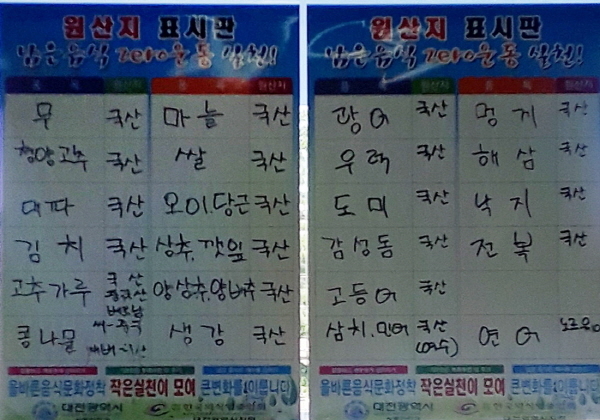 원산지 표시판
남은음식 zero운동 실천!
품 목 원산지 품 목 원산지
무 국산 마늘 국산
청양고추 국산 쌀 국산
대파 국산 오이.당근 국산
김치 국산 상추.깻잎 국산
고추가루 국산 양상추.양배추 국산
콩나물 생강 국산
올바른음식문화정착 작은실천이 모여 큰변화를 이룹니다
대전광역시
원산지 표시판
남은음식 zero운동 실천!
품 목 원산지 품 목 원산지
광어 국산 멍게 국산
우럭 국산 해삼 국산
도미 국산 낙지 국산
감성돔 국산 전복 국산
고등어 국산
삼치.민어 국산 (여수) 연어
올바른음식문화정착 작은실천이 모여 큰변화를 이룹니다
대전광역시